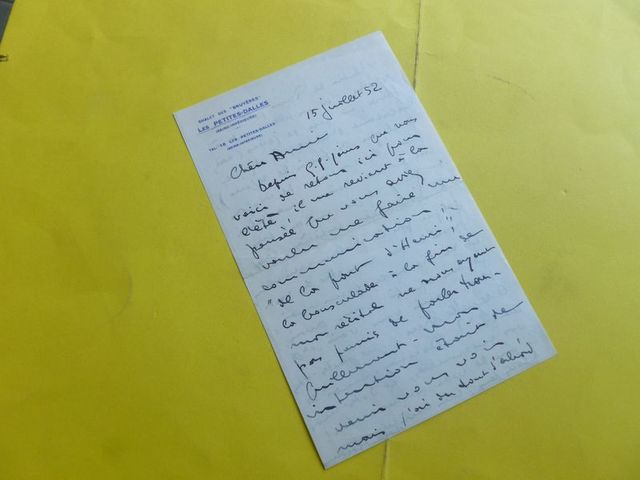 CHALET DES "BRUYÈRES"
LES PETITES-DALLES
(SEINE-INFÉRIEURE)
TEL. 18 LES PETITES-DALLES
(SEINE-INFÉRIEURE)
15 juillet 52
Chère Amie
Depuis qq. jours que nous
voici de retour ici pour
l'été, il me revient à la
pensée que vous aviez
voulu me faire une
communication
"de la part d'Henri",
la bousculade à la fin de
mon récital ne nous ayant
pas permis de parler tran-
quillement - mon
intention était de
venir vous voir
mais j'ai du tout d'abord